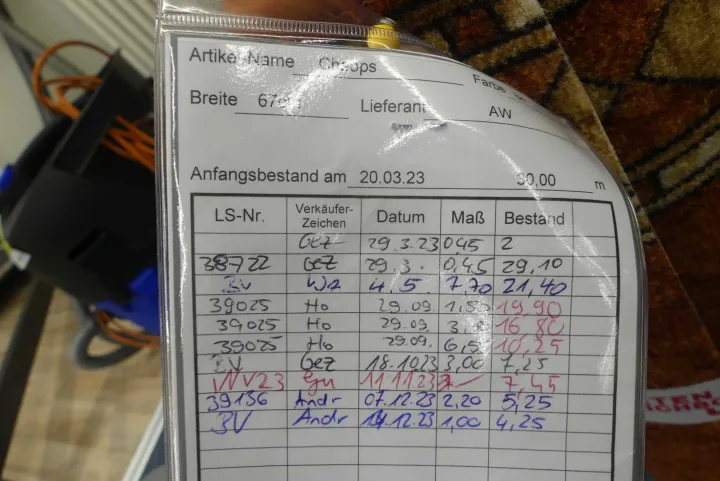 Artikel-Name Cheops Farbe
Breite 67 Lieferant AW
Anfangsbestand am 20.03.23 30,00 m
LS-Nr. Verkäufer-Zeichen Datum Maß Bestand
Gez 29.3.23 0,45 2
38722 Gez 29.3. 0,45 29,10
BV We 4.5. 7,70 21,40
39025 Ho 29.09. 1,50 19,90
39025 Ho 29.09. 16,80
39025 Ho 29.09. 6,5 10,25
BV Gez 18.10.23 3,00 7,25
INV23 11.11.23 7,45
39136 Andr 07.12.23 2,20 5,25
BV Andr 14.12.23 1,00 4,25